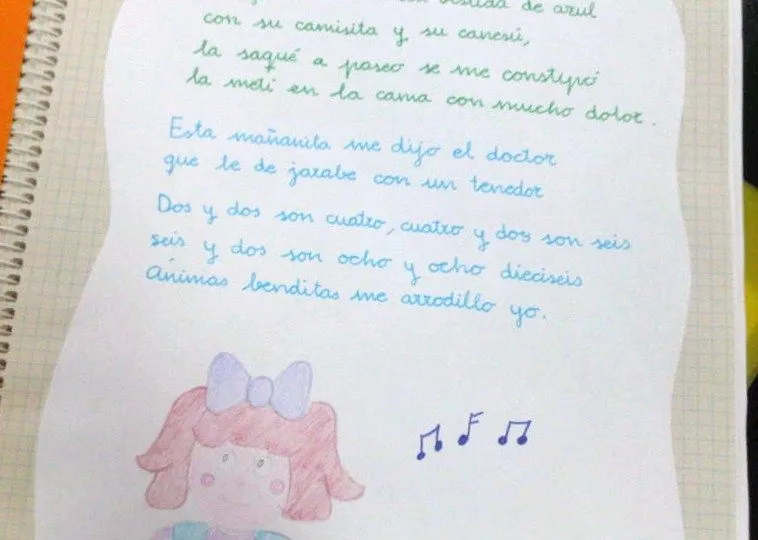 de azul
con su camisita y su canesú,
la saqué a paseo se me constipó
la metí en la cama con mucho dolor.
Esta mañanita me dijo el doctor
que le de jarabe con un tenedor
Dos y dos son cuatro, cuatro y dos son seis
seis y dos son ocho y ocho dieciseis
Ánimas benditas me arrodillo yo.